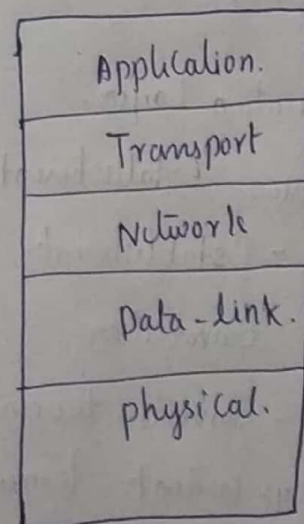 Application.
Transport
Network
Data-link.
physical.